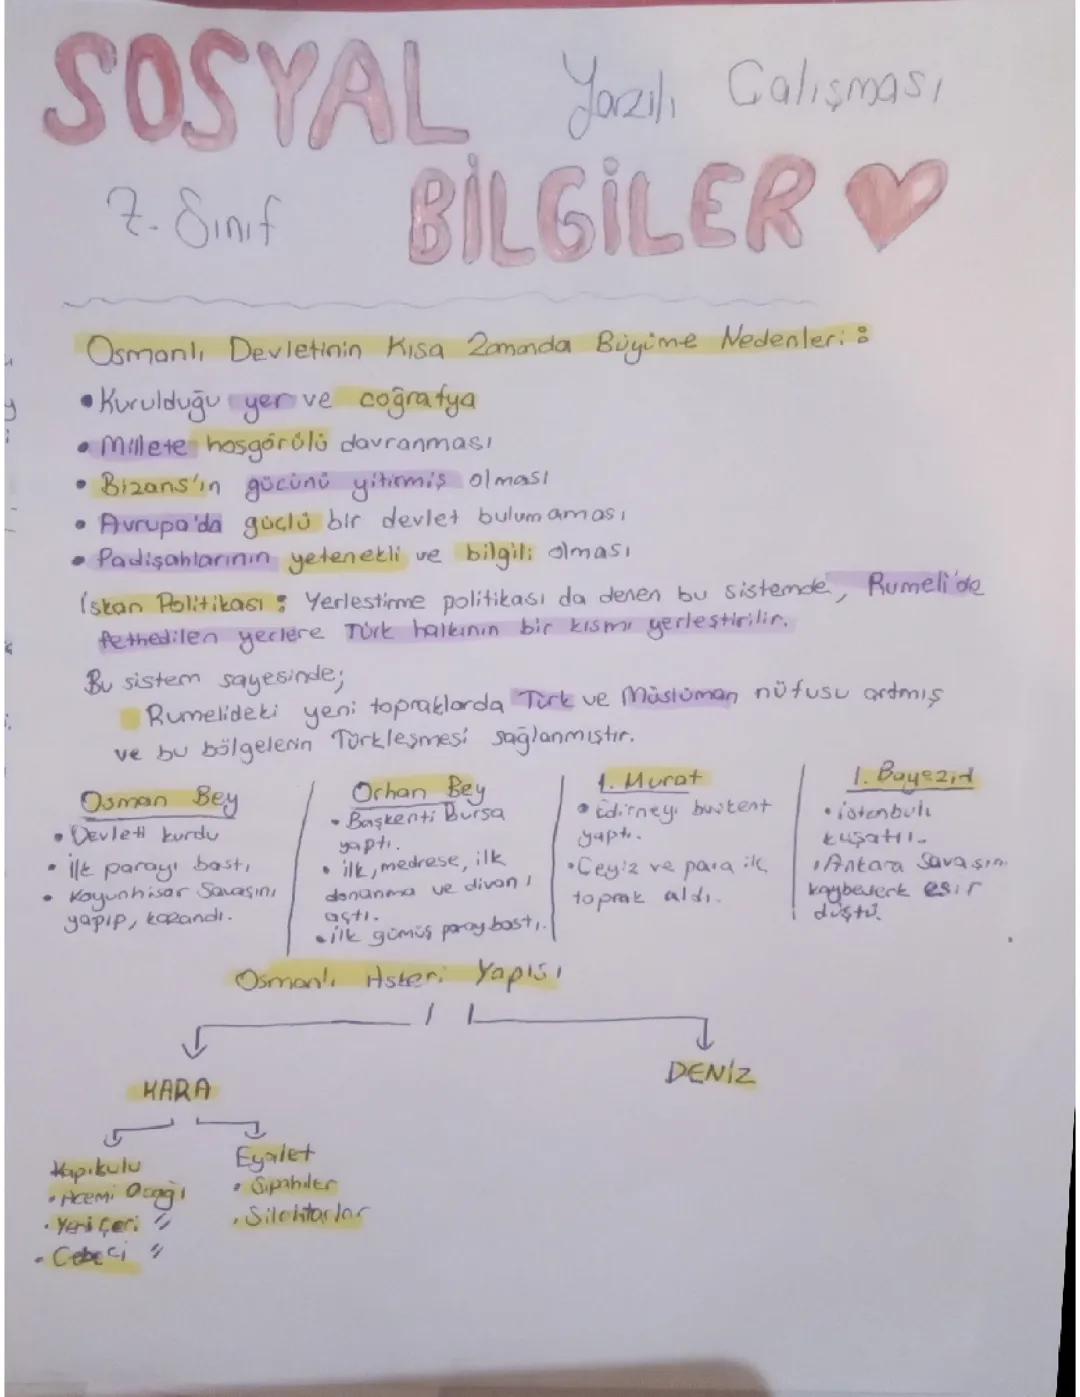 SOSYAL Yazılı Çalışması
7. Sınıf BİLGİLER
Osmanlı Devletinin Kısa Zamanda Büyüme Nedenleri:
• Kurulduğu yer ve coğrafya
• Millete hoşgörülü davranması
• Bizans'ın gücünü yitirmiş olması
• Avrupa'da güçlü bir devlet bulunmaması
• Padişahlarının yetenekli ve bilgili olması
İskan Politikası: Yerlestirme politikası da denen bu sistemde, Rumeli'de
fethedilen yerlere Türk halkının bir kısmı yerleştirilir.
Bu sistem sayesinde;
Rumelideki yeni topraklarda Türk ve Müslüman nüfusu artmış
ve bu bölgelerin Türkleşmesi sağlanmıştır.
Osman Bey
• Devleti kurdu
• İlk parayı bastı
• Koyunhisar Savaşını
yapıp, kazandı.
Orhan Bey
• Başkenti Bursa
yaptı.
• ilk, medrese, ilk
donanma ve divanı
açtı.
• ilk gümüş parayı bastı.
1. Murat
• Edirneyi başkent
yaptı.
• Çeyiz ve para ilk
toprak aldı.
1. Bayezid
• istanbulu
kuşattı.
• Ankara Savaşını
kaybederek esir
düştü.
Osmanlı Askeri Yapısı
KARA
DENİZ
Kapıkulu
• Acemi Ocağı
• Yeni Çeri "
• Cebeci "
Eyalet
• Sipahiler
• Silahtarlar